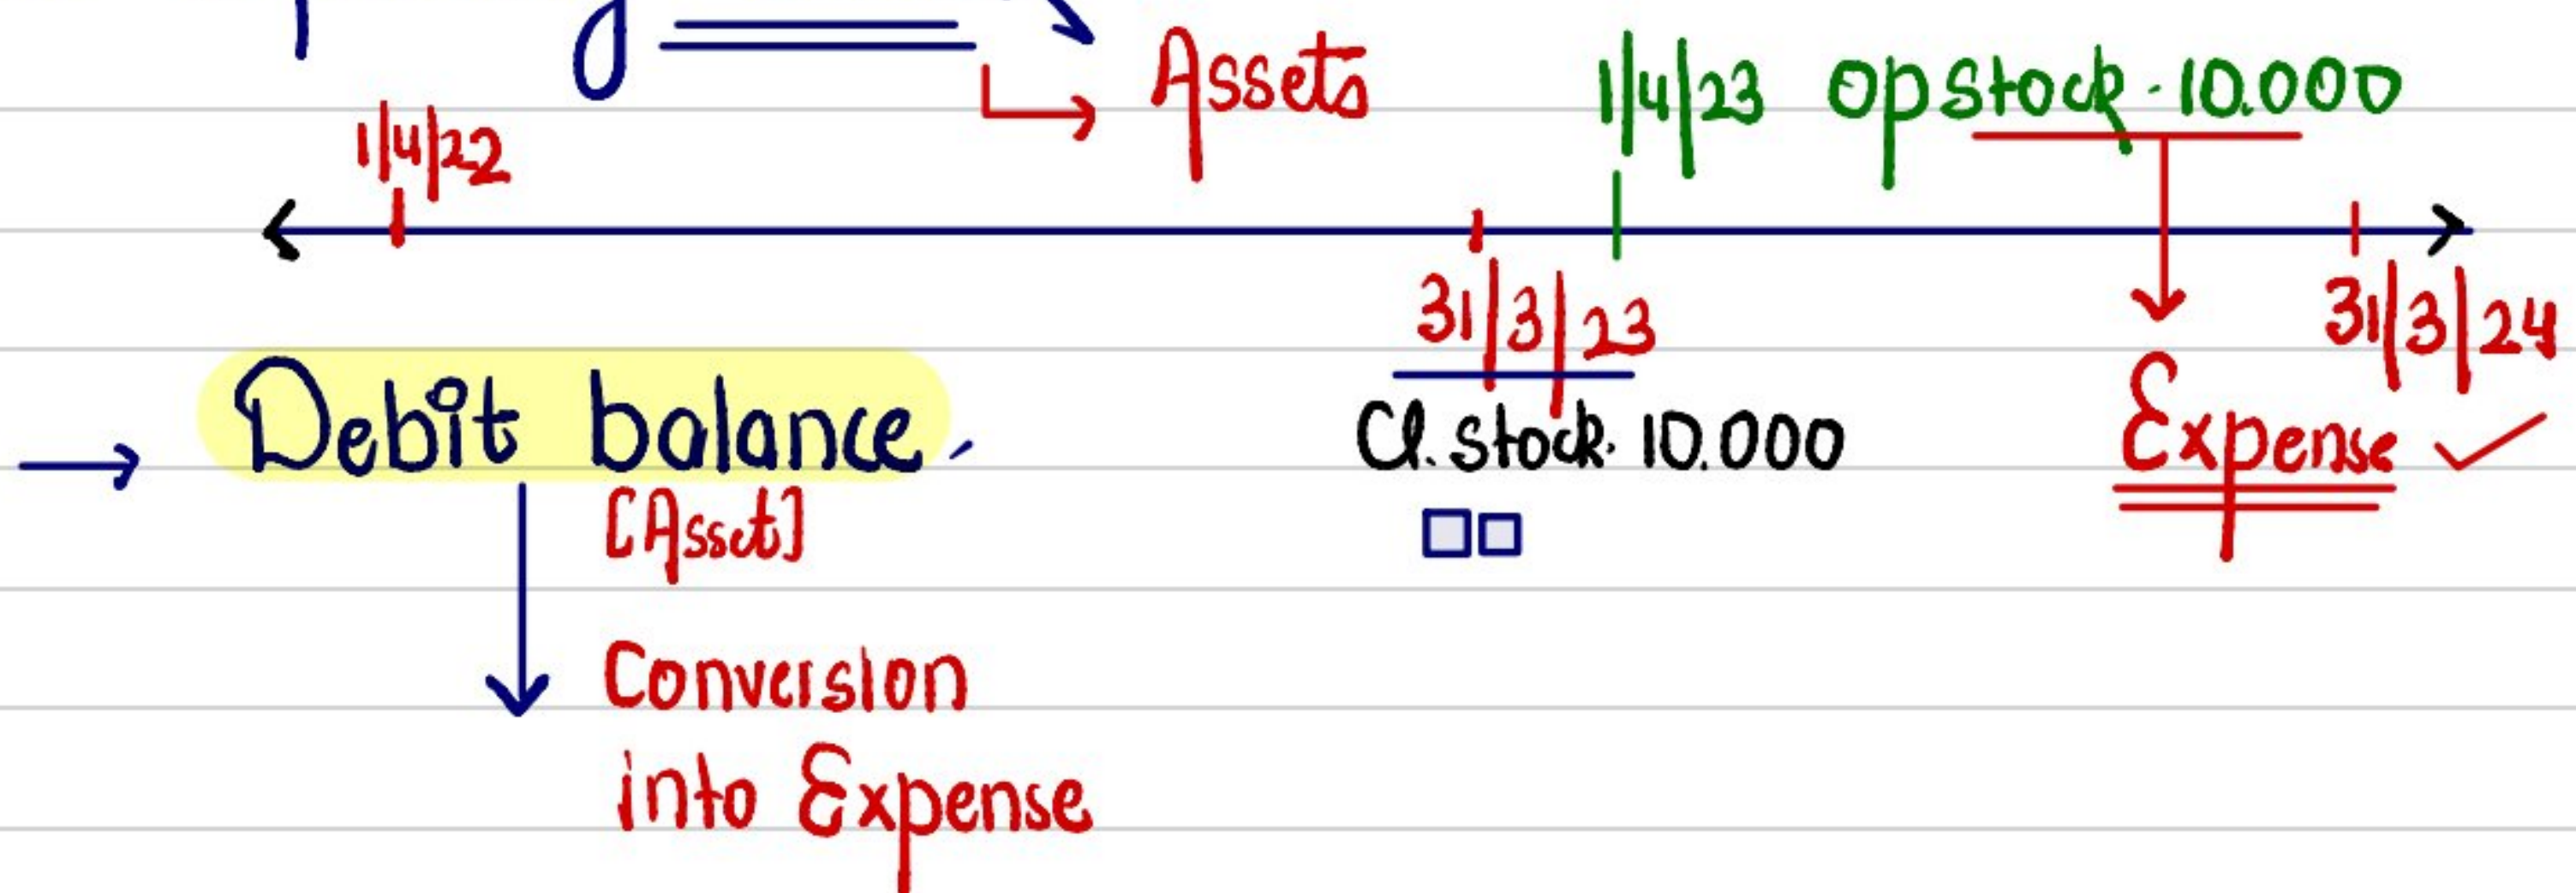 Assets
1/4/23 Op stock - 10.000
1/4/22
31/3/23
31/3/24
Debit balance
Cl. stock. 10.000
Expense
[Asset]
Conversion
into Expense